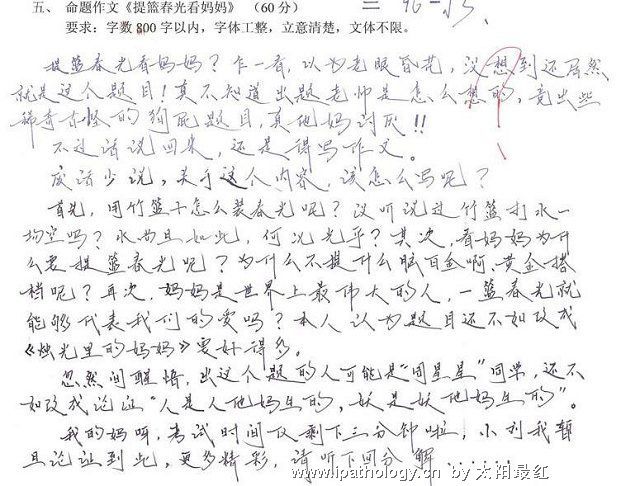 五、 命题作文《提篮春光看妈妈》（60 分）
要求：字数 800 字以内，字体工整，立意清楚，文体不限。
提篮春光看妈妈？乍一看，以为老眼昏花，没想到还居然
就是这个题目！真不知道出题老师是怎么想的，竟出些
稀奇古怪的狗屁题目，真他妈讨厌!!
不过话说回来，还是得写作文。
废话少说，关于这个内容，该怎么写呢？
首先，用竹篮子怎么装春光呢？没听说过竹篮打水一
场空吗？水尚且如此，何况光乎？其次，看妈妈为什
么要提篮春光呢？为什么不提什么脑白金啊、黄金搭
档呢？再次，妈妈是世界上最伟大的人，一篮春光就
能够代表我们的爱吗？本人认为题目还不如改成
《烛光里的妈妈》要好得多。
忽然间醒悟，出这个题的人可能是“周星星”同学，还不
如改成论证“人是人他妈生的，妖是妖他妈生的”。
我的妈呀，考试时间仅剩下三分钟啦，小刘我暂
且论证到此，更多精彩，请听下回分解……
www.ipathology.cn by 太阳最红